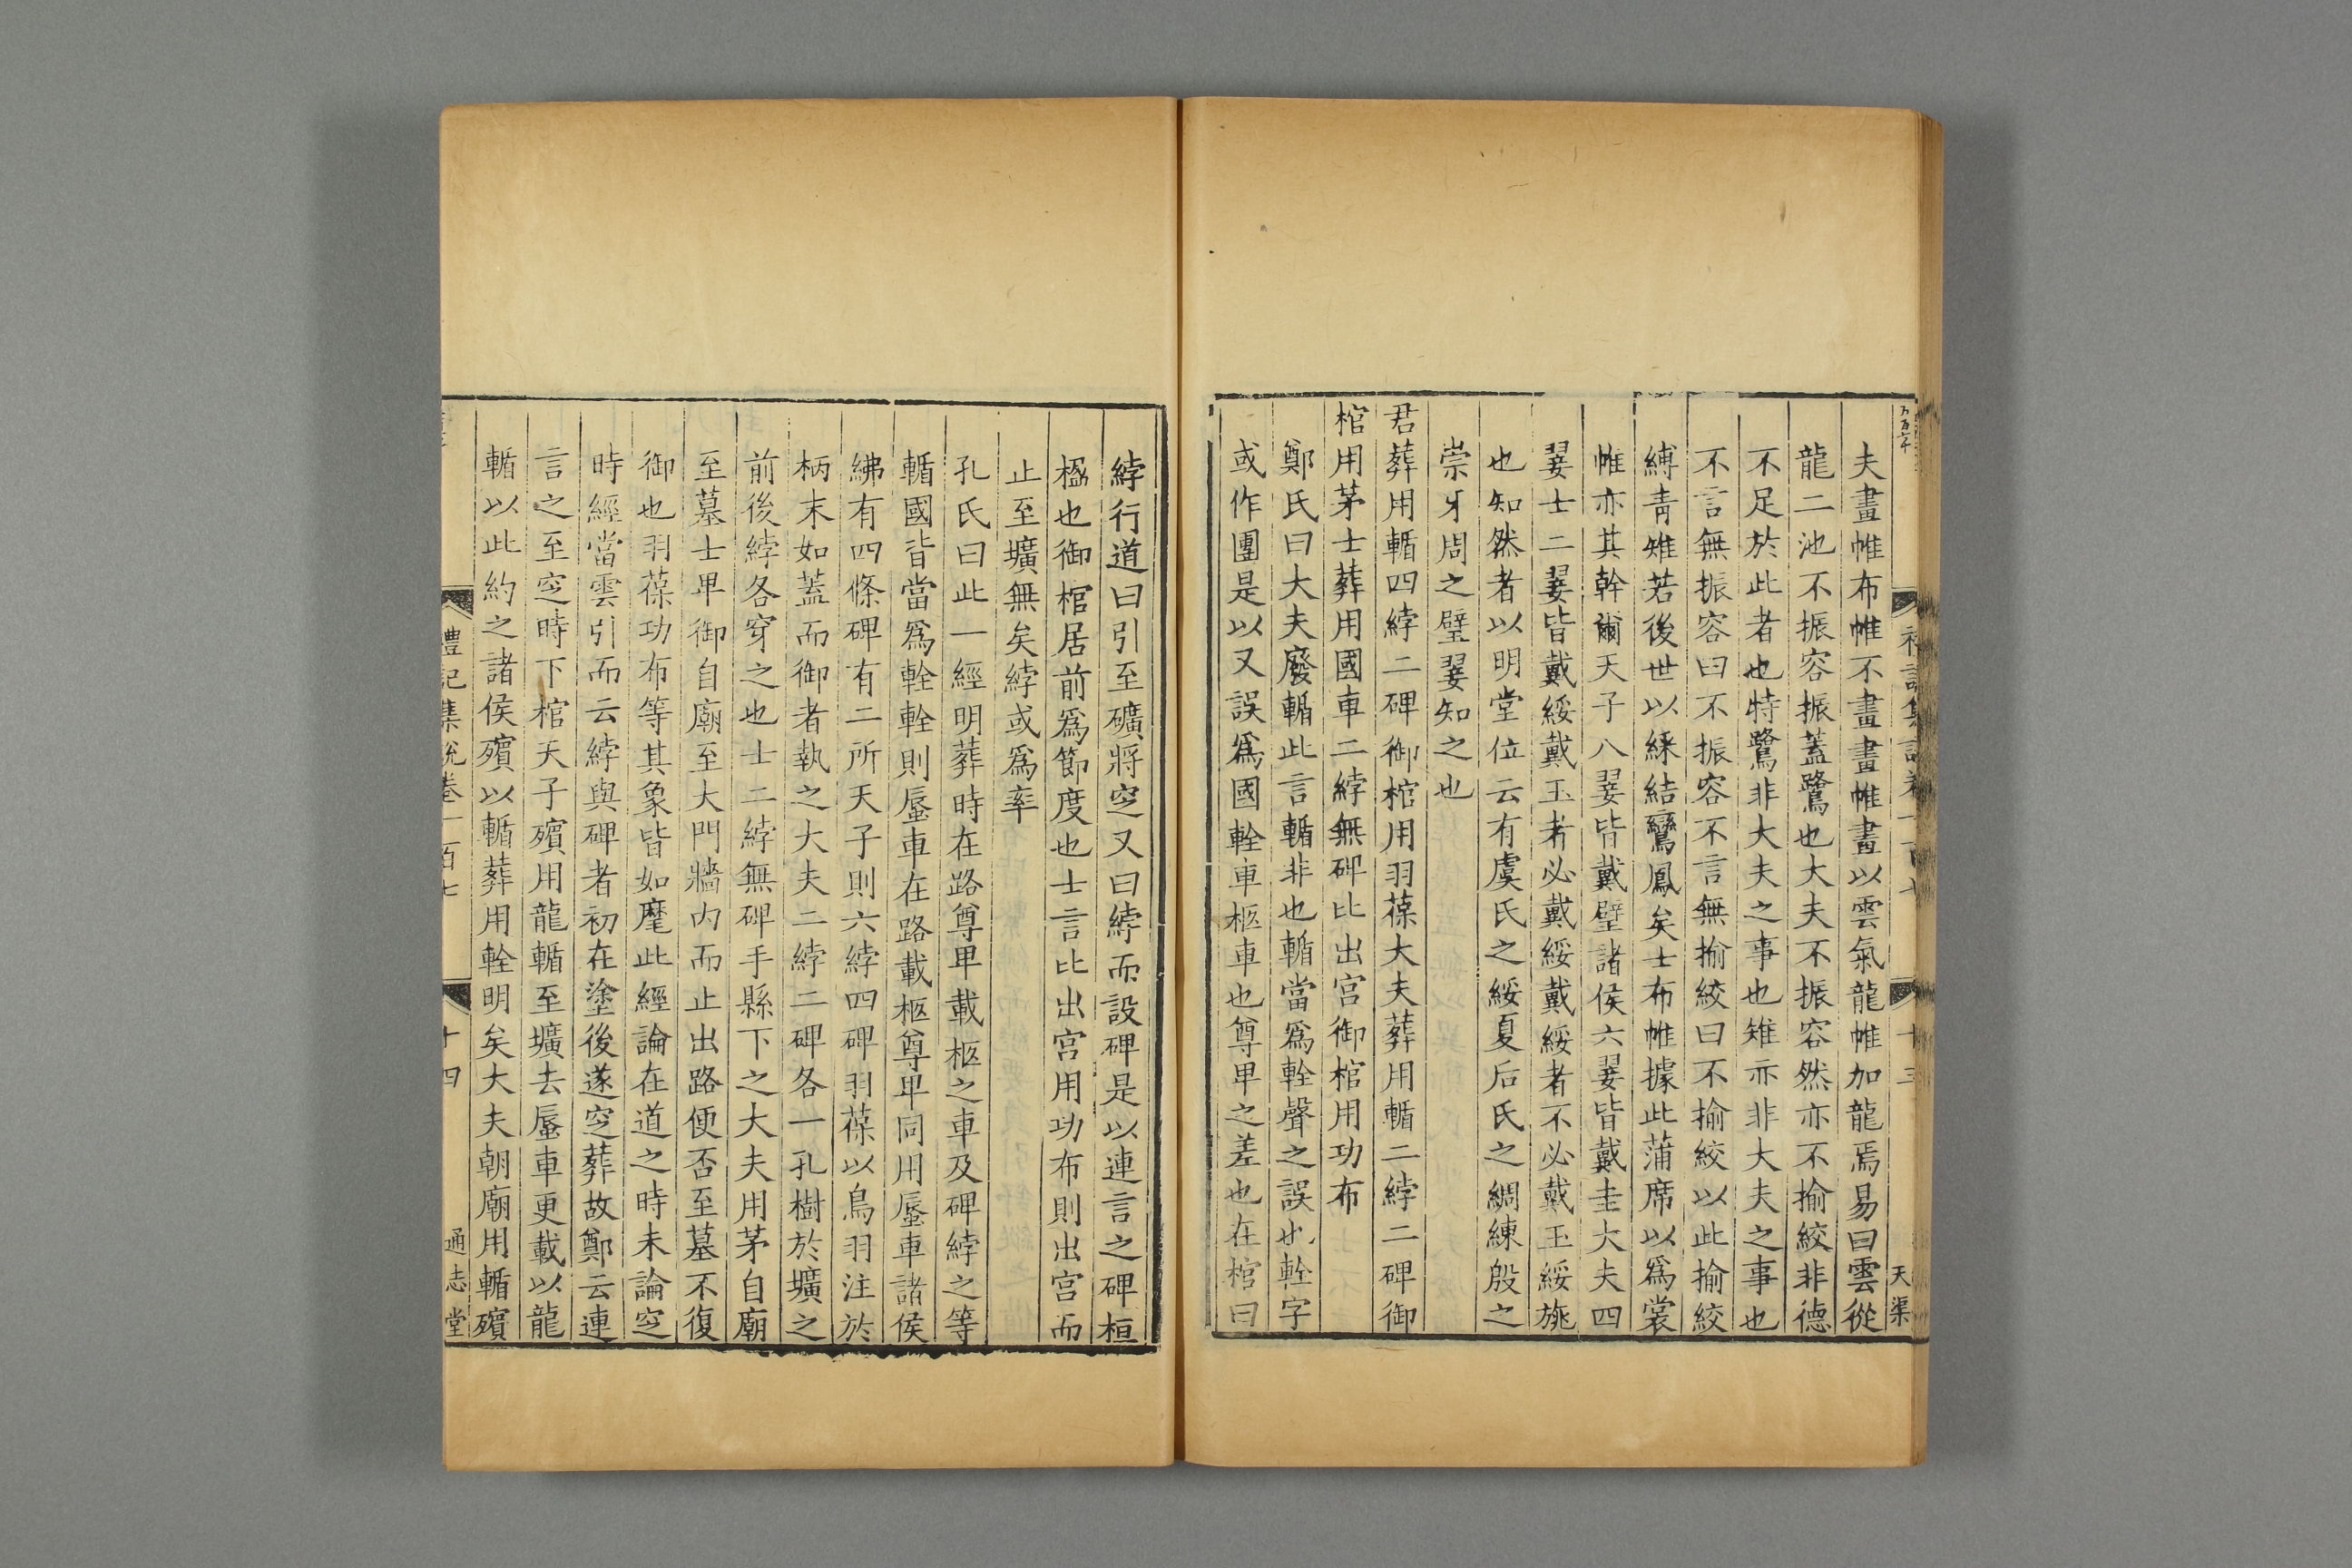 夫畫帷布帷不畫畫帷畫以雲氣龍帷加龍焉易曰雲從
龍二池不振容振蓋鷺也大夫不振容然亦不揄絞非德
不足於此者也特鷺非大夫之事也雉亦非大夫之事也
不言無振容曰不振容不言無揄絞曰不揄絞以此揄絞
縛青雉若後世以綵結鸞鳳矣士布帷據此蒲席以爲裳
帷亦其幹爾天子八翣皆戴璧諸侯六翣皆戴圭大夫四
翣士二翣皆戴綏戴玉者必戴綏戴綏者不必戴玉綏旐
也知然者以明堂位云有虞氏之綏夏后氏之綢練殷之
崇牙周之璧翣知之也
君葬用輴四綍二碑御棺用羽葆大夫葬用輴二綍二碑御
棺用茅士葬用國車二綍無碑比出宮御棺用功布
鄭氏曰大夫廢輴此言輴非也輴當爲輇聲之誤也輇字
或作團是以又誤爲國輇車柩車也尊卑之差也在棺曰
十三
天渠
綍行道曰引至壙將窆又曰綍而設碑是以連言之碑桓
楹也御棺居前爲節度也士言比出宮用功布則出宮而
止至壙無矣綍或爲率
孔氏曰此一經明葬時在路尊卑載柩之車及碑綍之等
輴國皆當爲輇輇則蜃車在路載柩尊卑同用蜃車諸侯
紼有四條碑有二所天子則六綍四碑羽葆以鳥羽注於
柄末如蓋而御者執之大夫二綍二碑各一孔樹於壙之
前後綍各穿之也士二綍無碑手縣下之大夫用茅自廟
至墓士卑御自廟至大門牆內而止出路便否至墓不復
御也羽葆功布等其象皆如麾此經論在道之時未論窆
時經當雲引而云綍與碑者初在塗後遂窆葬故鄭云連
言之至窆時下棺天子殯用龍輴至壙去蜃車更載以龍
輴以此約之諸侯殯以輴葬用輇明矣大夫朝廟用輴殯
禮記集說卷一百七
十四
通志堂